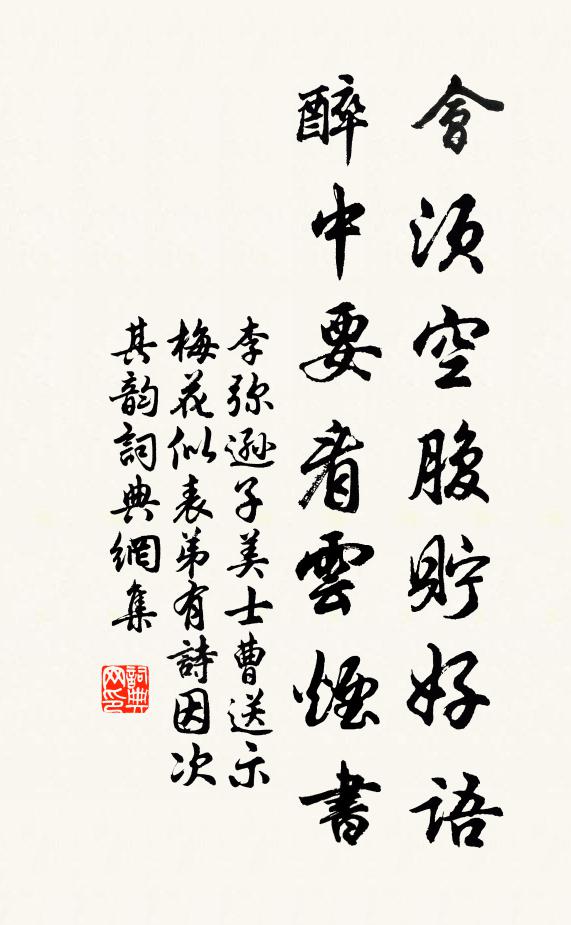 會須空腹貯好語
醉中要看雲煙書
李弥遜子美士曹送示
梅花似表弟有詩因次
其韵詞典網集
詞典网印